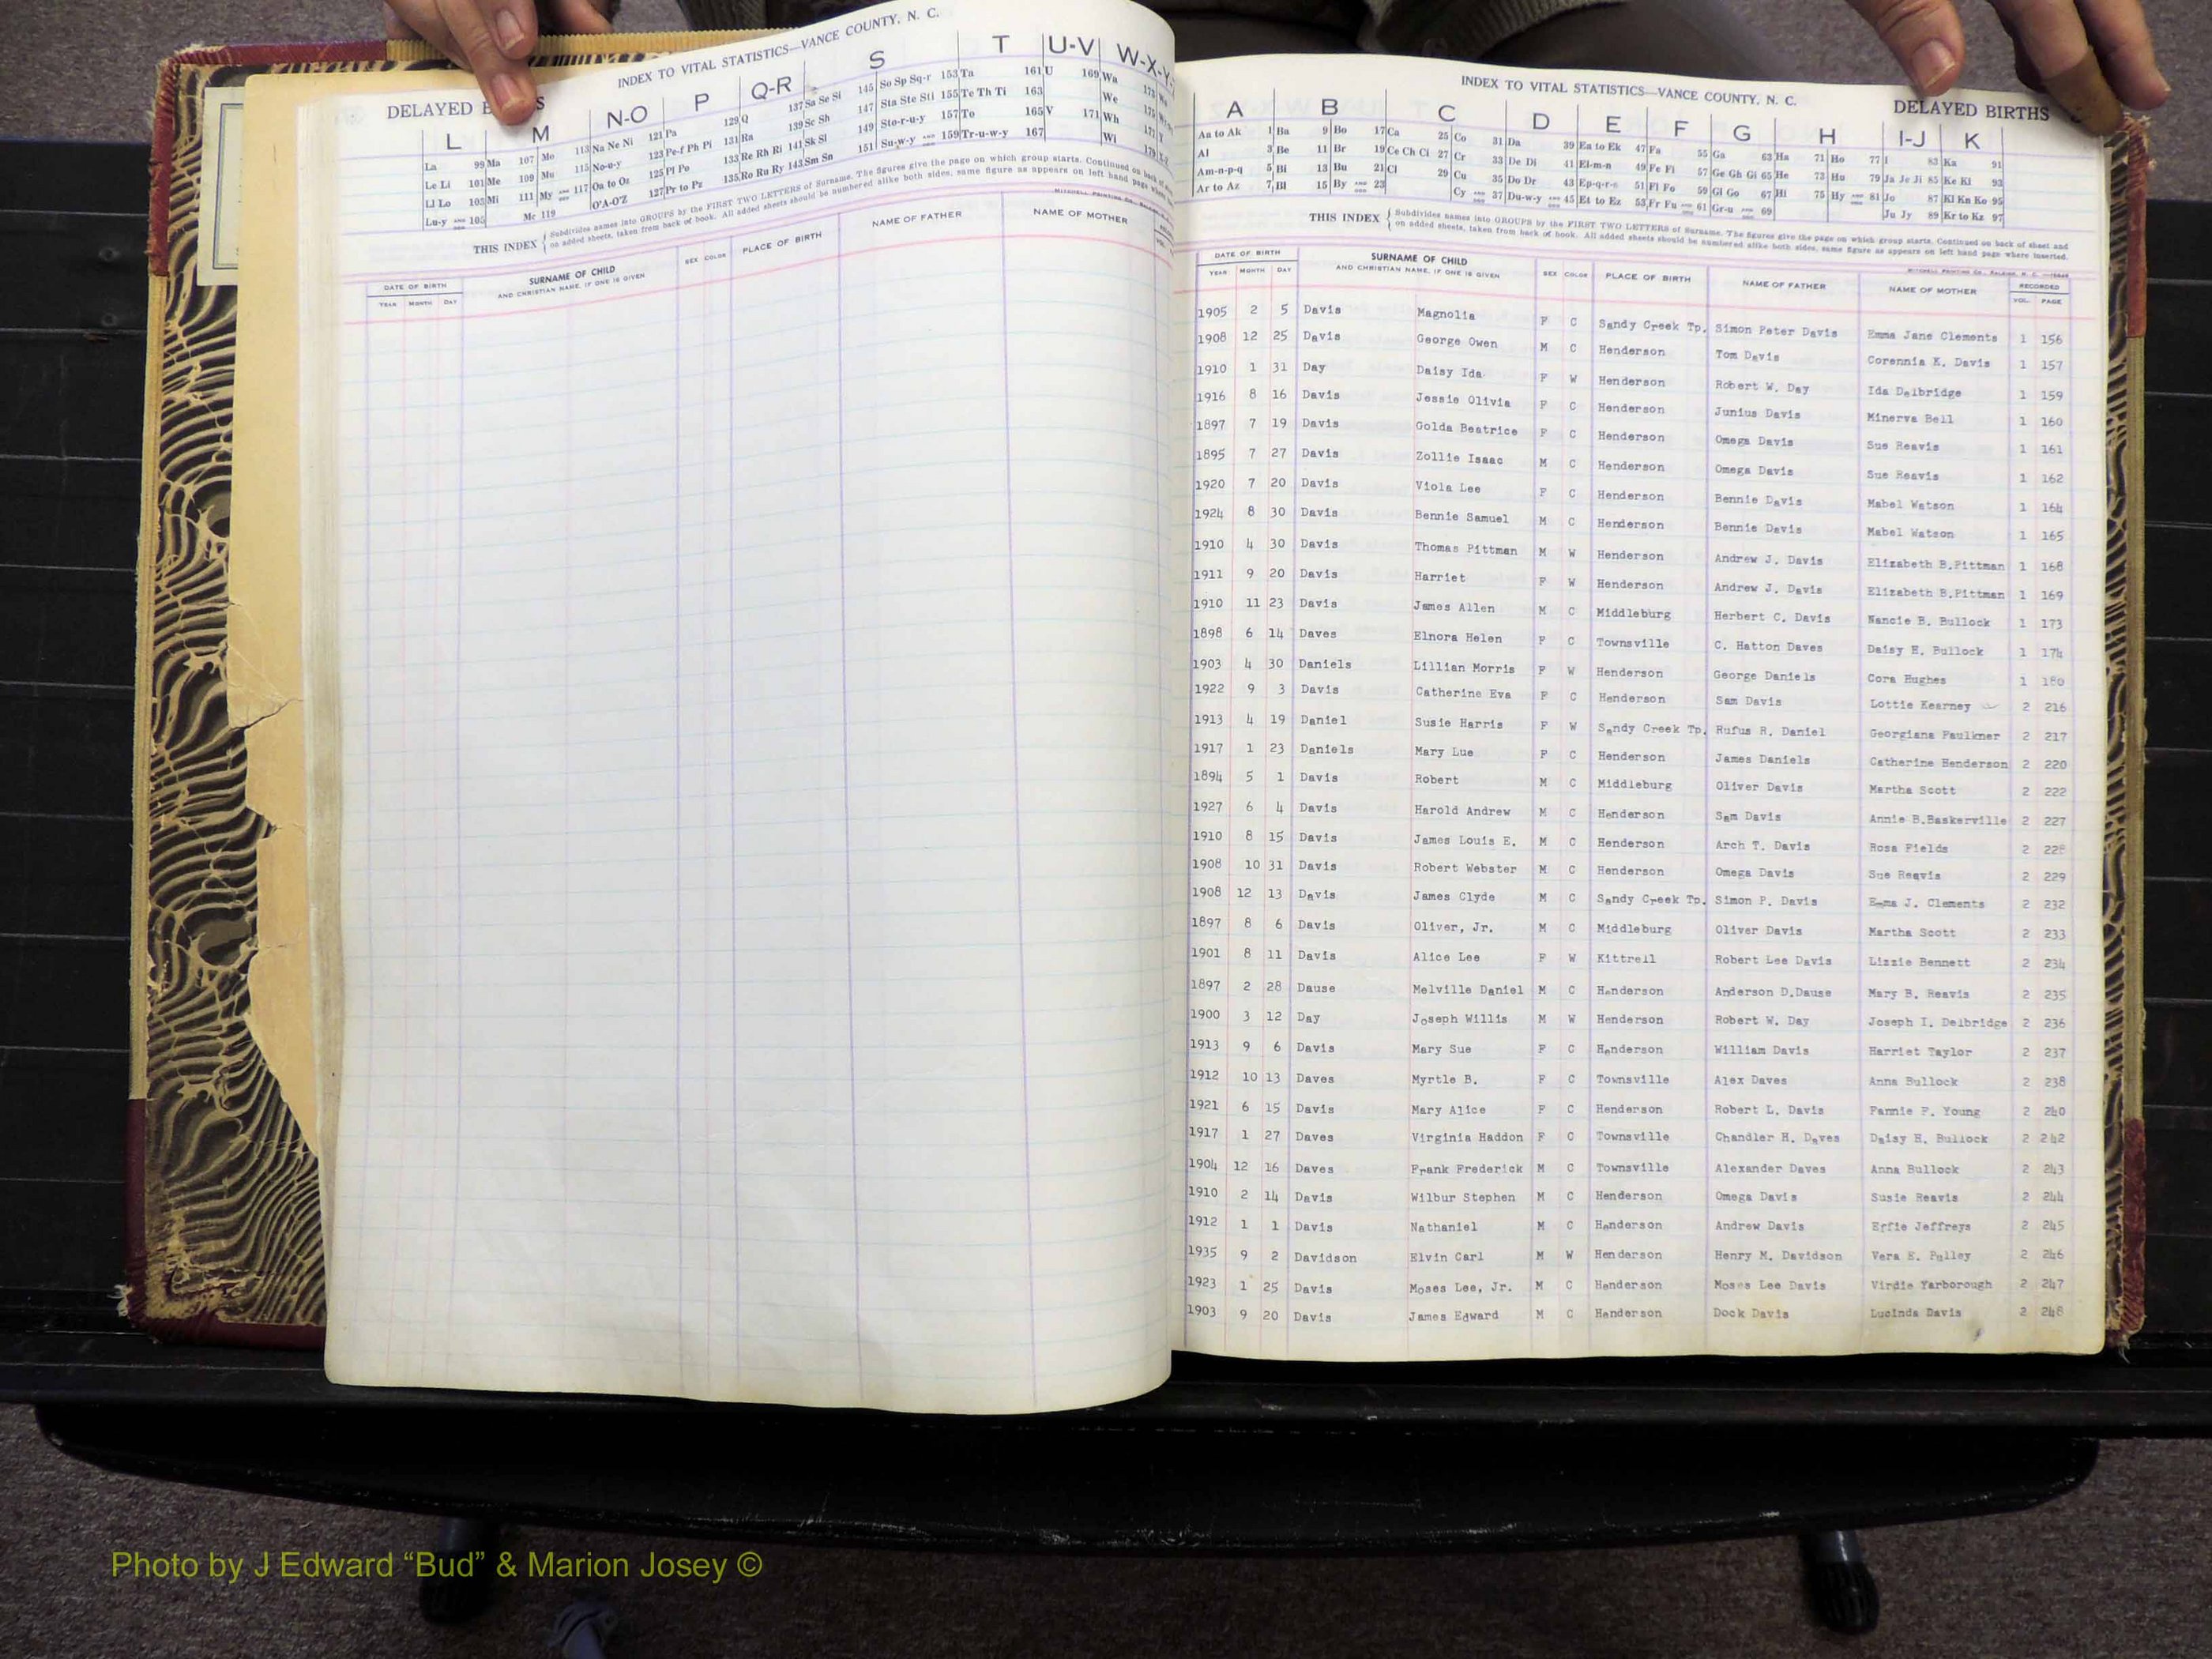 INDEX TO VITAL STATISTICS—VANCE COUNTY, N. C.
DELAYED B S
L M N-O P Q-R S T U-V W-X-Y-
La 99 Ma 107 Mo 113 Na Ne Ni 121 Pa 129 Q 137 Sa Se Si 145 So Sp Sq-r 153 Ta 161 U 169 Wa 173
Le Li 101 Me 109 Mu 115 No-u-y 123 Pe-f Ph Pi 131 Ra 139 Sc Sh 147 Sta Ste Sti 155 Te Th Ti 163 We 175
Ll Lo 103 Mi 111 My AND 117 Oa to Oz 125 Pl Po 133 Re Rh Ri 141 Sk Sl 149 Sto-r-u-y 157 To 165 V 171 Wh 177
Lu-y AND 105 Mc 119 O'A-O'Z 127 Pr to Pz 135 Ro Ru Ry 143 Sm Sn 151 Su-w-y AND 159 Tr-u-w-y 167 Wi 179
THIS INDEX { Subdivides names into GROUPS by the FIRST TWO LETTERS of Surname. The figures give the page on which group starts. Continued on back of
on added sheets, taken from back of book. All added sheets should be numbered alike both sides, same figure as appears on left hand page
DATE OF BIRTH SURNAME OF CHILD SEX COLOR PLACE OF BIRTH NAME OF FATHER NAME OF MOTHER
YEAR MONTH DAY AND CHRISTIAN NAME, IF ONE IS GIVEN
INDEX TO VITAL STATISTICS—VANCE COUNTY, N. C.
DELAYED BIRTHS
A B C D E F G H I-J K
Aa to Ak 1 Ba 9 Bo 17 Ca 25 Co 31 Da 39 Ea to Ek 47 Fa 55 Ga 63 Ha 71 Ho 77 I 83 Ka 91
Al 3 Be 11 Br 19 Ce Ch Ci 27 Cr 33 De Di 41 El-m-n 49 Fe Fi 57 Ge Gh Gi 65 He 73 Hu 79 Ja Je Ji 85 Ke Ki 93
Am-n-p-q 5 Bi 13 Bu 21 Cl 29 Cu 35 Do Dr 43 Ep-q-r-s 51 Fl Fo 59 Gl Go 67 Hi 75 Hy AND 81 Jo 87 Kl Kn Ko 95
Ar to Az 7 Bl 15 By AND 23 Cy AND 37 Du-w-y AND 45 Et to Ez 53 Fr Fu AND 61 Gr-u AND 69 Ju Jy 89 Kr to Kz 97
THIS INDEX { Subdivides names into GROUPS by the FIRST TWO LETTERS of Surname. The figures give the page on which group starts. Continued on back of sheet and
on added sheets, taken from back of book. All added sheets should be numbered alike both sides, same figure as appears on left hand page where inserted.
DATE OF BIRTH SURNAME OF CHILD SEX COLOR PLACE OF BIRTH NAME OF FATHER NAME OF MOTHER RECORDED
YEAR MONTH DAY AND CHRISTIAN NAME, IF ONE IS GIVEN VOL. PAGE
1905 2 5 Davis Magnolia F C Sandy Creek Tp. Simon Peter Davis Emma Jane Clements 1 156
1908 12 25 Davis George Owen M C Henderson Tom Davis Corennia K. Davis 1 157
1910 1 31 Day Daisy Ida F W Henderson Robert W. Day Ida Delbridge 1 159
1916 8 16 Davis Jessie Olivia F C Henderson Junius Davis Minerva Bell 1 160
1897 7 19 Davis Golda Beatrice F C Henderson Omega Davis Sue Reavis 1 161
1895 7 27 Davis Zollie Isaac M C Henderson Omega Davis Sue Reavis 1 162
1920 7 20 Davis Viola Lee F C Henderson Bennie Davis Mabel Watson 1 164
1924 8 30 Davis Bennie Samuel M C Henderson Bennie Davis Mabel Watson 1 165
1910 4 30 Davis Thomas Pittman M W Henderson Andrew J. Davis Elizabeth B.Pittman 1 168
1911 9 20 Davis Harriet F W Henderson Andrew J. Davis Elizabeth B.Pittman 1 169
1910 11 23 Davis James Allen M C Middleburg Herbert C. Davis Nancie B. Bullock 1 173
1898 6 14 Daves Elnora Helen F C Townsville C. Hatton Daves Daisy H. Bullock 1 174
1903 4 30 Daniels Lillian Morris F W Henderson George Daniels Cora Hughes 1 180
1922 9 3 Davis Catherine Eva F C Henderson Sam Davis Lottie Kearney 2 216
1913 4 19 Daniel Susie Harris F W Sandy Creek Tp. Rufus R. Daniel Georgiana Faulkner 2 217
1917 1 23 Daniels Mary Lue F C Henderson James Daniels Catherine Henderson 2 220
1894 5 1 Davis Robert M C Middleburg Oliver Davis Martha Scott 2 222
1927 6 4 Davis Harold Andrew M C Henderson Sam Davis Annie B.Baskerville 2 227
1910 8 15 Davis James Louis E. M C Henderson Arch T. Davis Rosa Fields 2 228
1908 10 31 Davis Robert Webster M C Henderson Omega Davis Sue Reavis 2 229
1908 12 13 Davis James Clyde M C Sandy Creek Tp. Simon P. Davis Emma J. Clements 2 232
1897 8 6 Davis Oliver, Jr. M C Middleburg Oliver Davis Martha Scott 2 233
1901 8 11 Davis Alice Lee F W Kittrell Robert Lee Davis Lizzie Bennett 2 234
1897 2 28 Dause Melville Daniel M C Henderson Anderson D.Dause Mary B. Reavis 2 235
1900 3 12 Day Joseph Willis M W Henderson Robert W. Day Joseph I. Delbridge 2 236
1913 9 6 Davis Mary Sue F C Henderson William Davis Harriet Taylor 2 237
1912 10 13 Daves Myrtle B. F C Townsville Alex Daves Anna Bullock 2 238
1921 6 15 Davis Mary Alice F C Henderson Robert L. Davis Fannie F. Young 2 240
1917 1 27 Daves Virginia Haddon F C Townsville Chandler H. Daves Daisy H. Bullock 2 242
1904 12 16 Daves Frank Frederick M C Townsville Alexander Daves Anna Bullock 2 243
1910 2 14 Davis Wilbur Stephen M C Henderson Omega Davis Susie Reavis 2 244
1912 1 1 Davis Nathaniel M C Henderson Andrew Davis Effie Jeffreys 2 245
1935 9 2 Davidson Elvin Carl M W Henderson Henry M. Davidson Vera E. Pulley 2 246
1923 1 25 Davis Moses Lee, Jr. M C Henderson Moses Lee Davis Virdie Yarborough 2 247
1903 9 20 Davis James Edward M C Henderson Dock Davis Lucinda Davis 2 248
Photo by J Edward “Bud” & Marion Josey ©